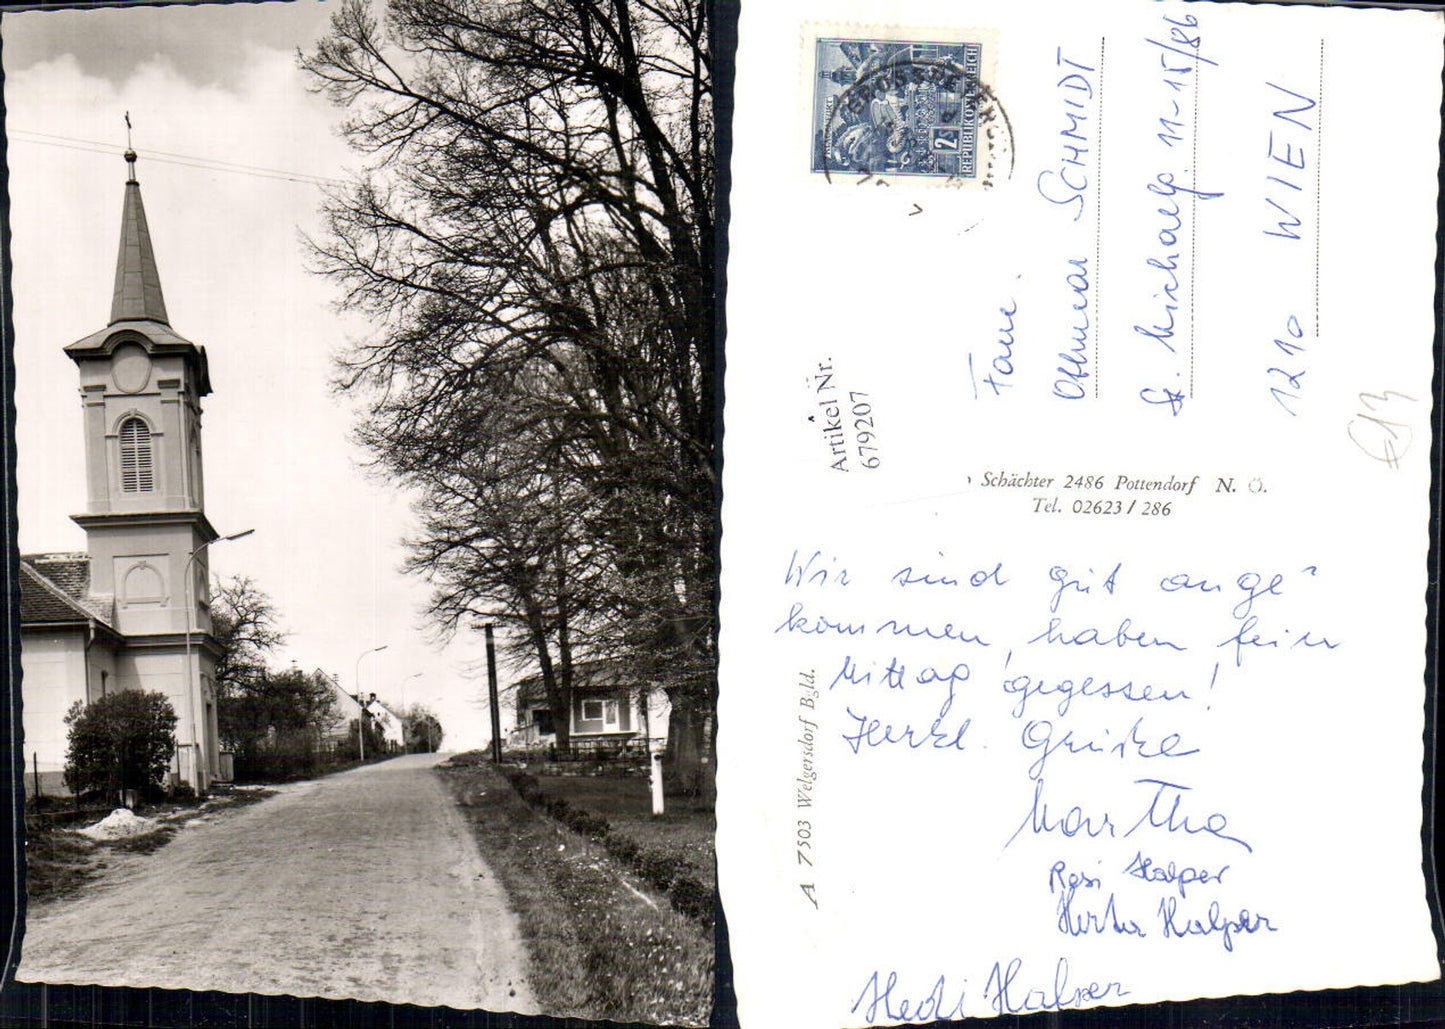 2 S
REPUBLIK ÖSTERREICH
Fam.
Othmar SCHMIDT
11-15/86
1210 WIEN
Artikel Nr.
679207
Schächter 2486 Pottendorf N. Ö.
Tel. 02623 / 286
A 7503 Welgersdorf Bgld.
Wir sind gut ange"
kommen, haben fein
Mittag gegessen!
Herzl. Grüße
Martha
Resi Halper
Herta Halper
Hedi Halper